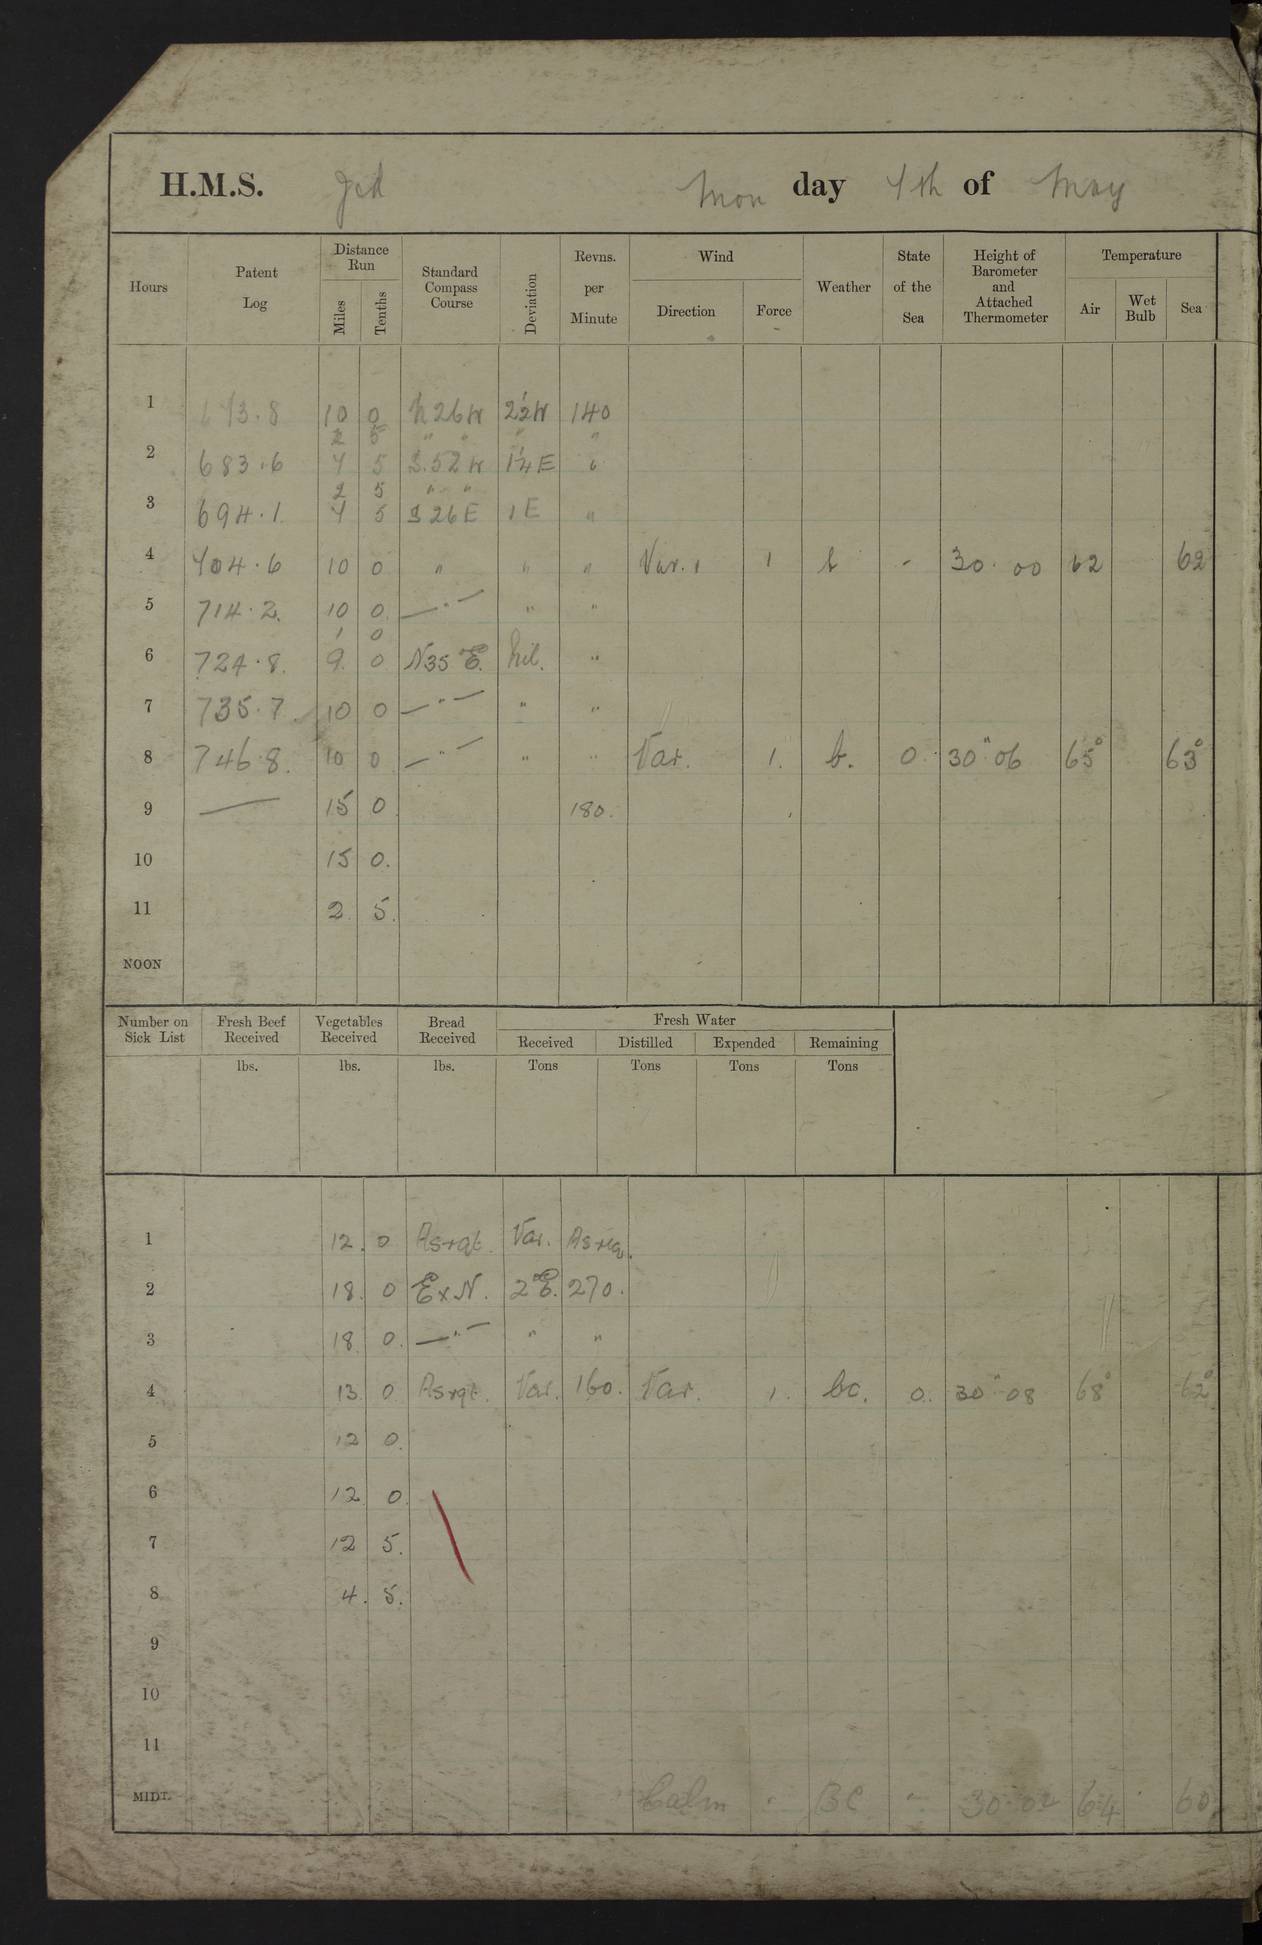 H.M.S. Jed Mon day 7th of May
Hours Patent Log Distance Run Miles Tenths Standard Compass Course Deviation Revns. per Minute Wind Direction Force Weather State of the Sea Height of Barometer and Attached Thermometer Temperature Air Wet Bulb Sea
1 673.8 10 0 N26W 2½W 140
2 5 " " " "
2 683.6 7 5 S.52W 1¼E "
2 5 " "
3 694.1 7 5 S26E 1E "
4 704.6 10 0 " " " Var. 1 b - 30.00 62 62
5 714.2. 10 0. —"— " "
1 0
6 724.8. 9. 0 N35E. Nil. "
7 735.7. 10 0 —"— " "
8 746.8. 10 0 —"— " " Var. 1. b. 0. 30"06 65° 63°
9 — 15 0. 180.
10 15 0.
11 2. 5.
NOON
Number on Sick List Fresh Beef Received Vegetables Received Bread Received Fresh Water
Received Distilled Expended Remaining
lbs. lbs. lbs. Tons Tons Tons Tons
1 12. 0 Asrqt. Var. Asreq.
2 18. 0 ExN. 2E. 270.
3 18 0. —"— " "
4 13. 0 Asrqt. Var. 160. Var. 1. bc. 0. 30"08 68° 62°
5 12 0.
6 12 0.
7 12 5.
8 4. 5.
9
10
11
MIDT. Calm " BC " 30.02 64 60